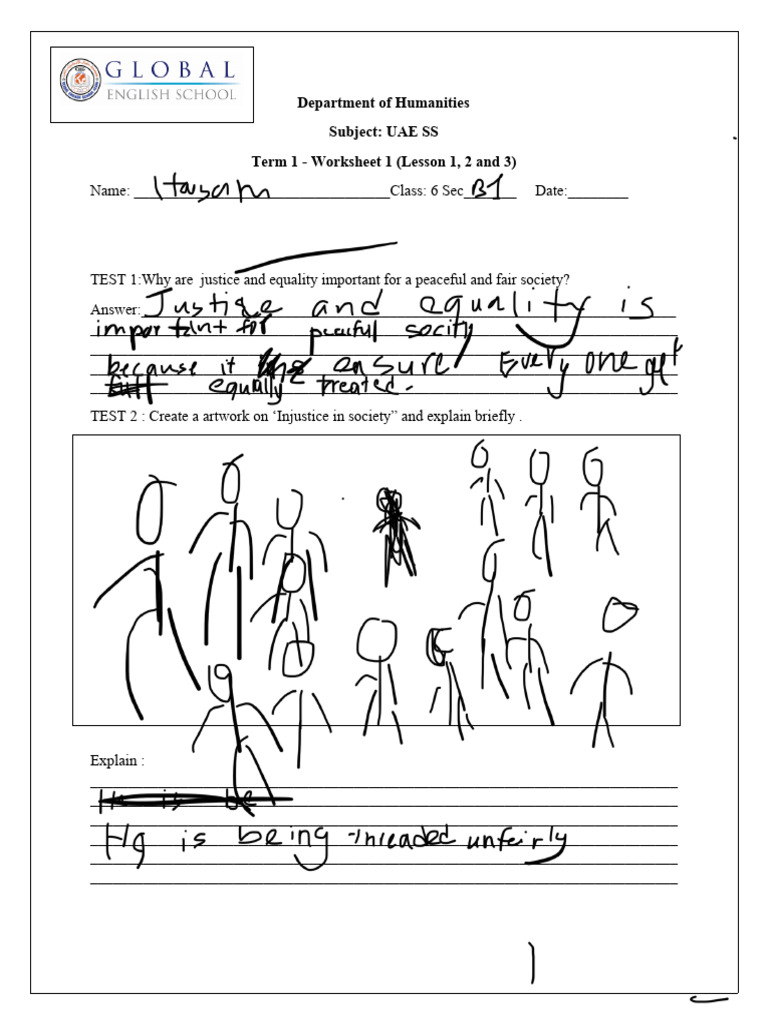 GLOBAL
ENGLISH SCHOOL
Department of Humanities
Subject: UAE SS
Term 1 - Worksheet 1 (Lesson 1, 2 and 3)
Name: ________ Class: 6 Sec B1 Date:________
TEST 1:Why are justice and equality important for a peaceful and fair society?
Answer: Justice and equality is
important for peacful socity
because it ensure Every one get
equally treated.
TEST 2 : Create a artwork on ‘Injustice in society” and explain briefly .
Explain :
He is be
He is being unfeirly